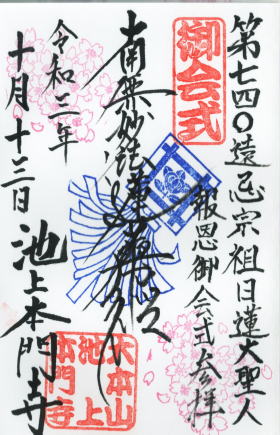 第七四〇遠忌宗祖日蓮大聖人
御会式
報恩御会式参拝
南無妙法蓮華経
令和三年
十月十三日
池上本門寺
大本山
池上
本門寺